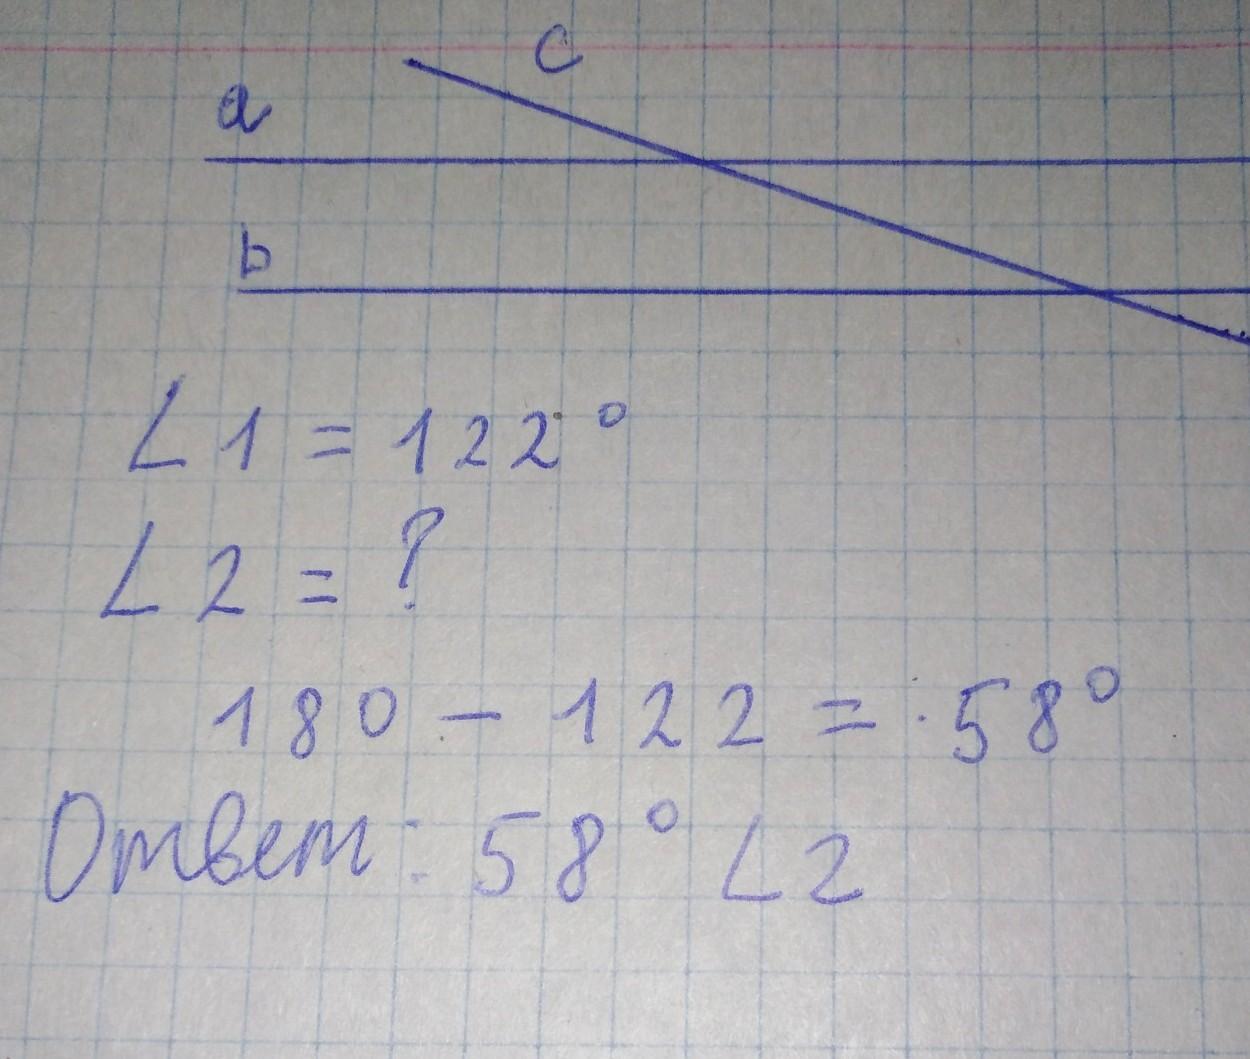 c
a
b
∠1 = 122°
∠2 = ?
180 - 122 = 58°
Ответ: 58° ∠2